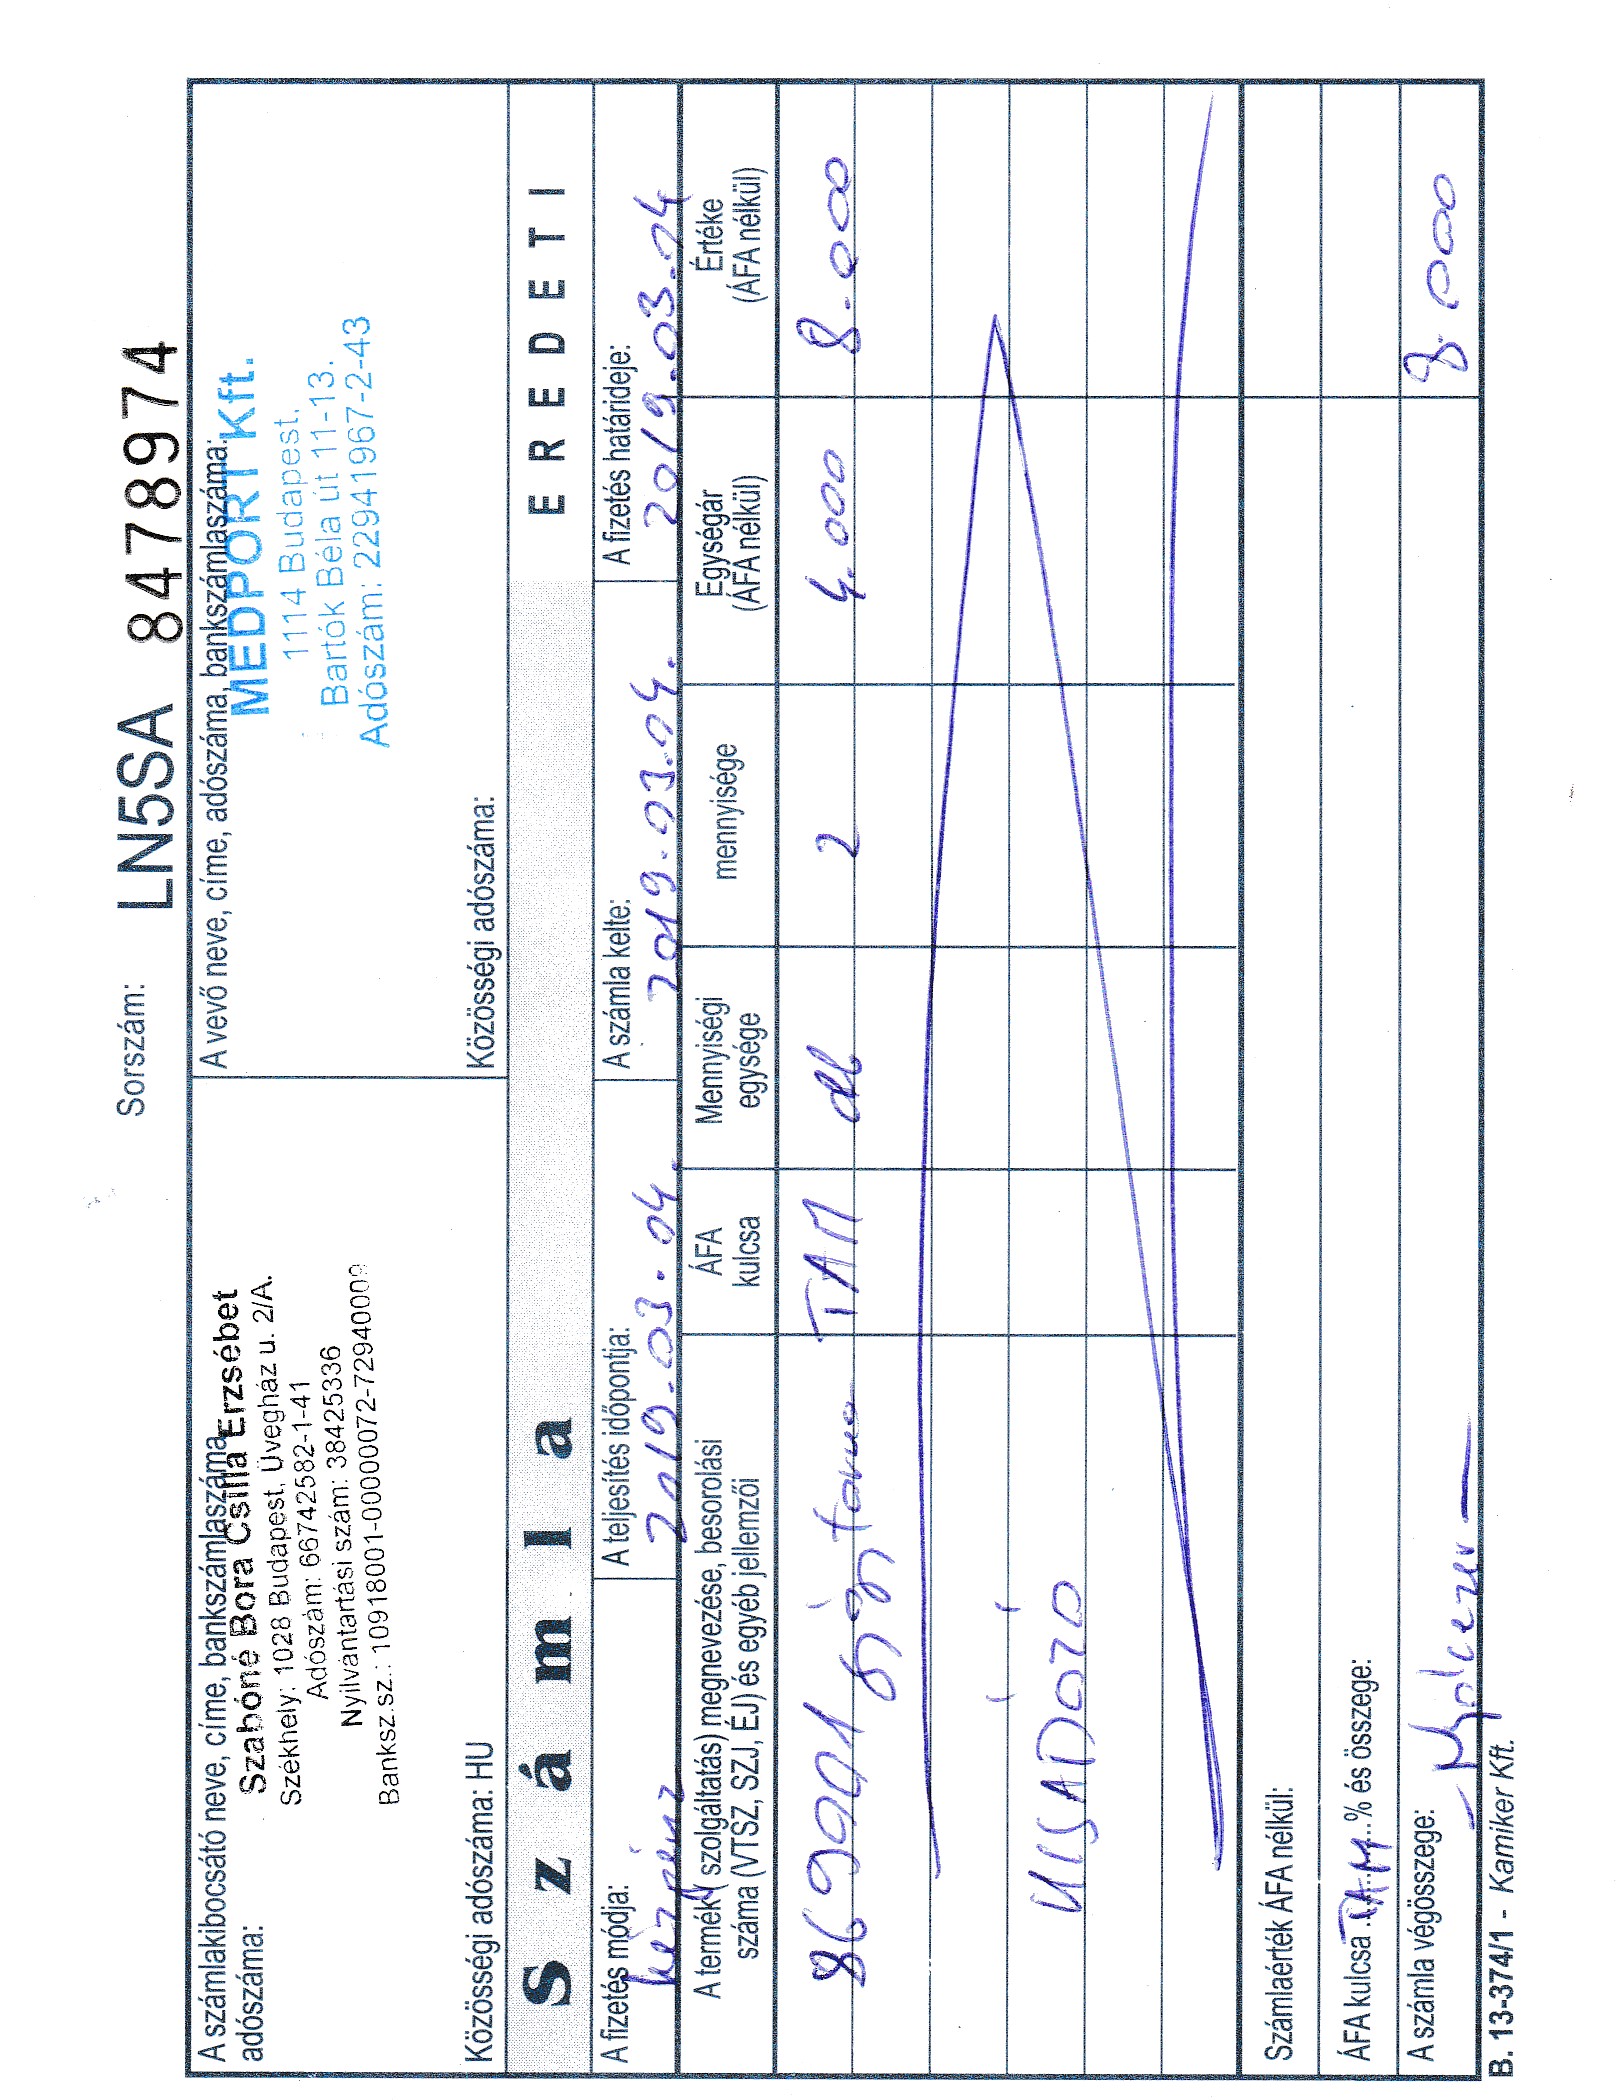 Sorszám: LN5SA 8478974
A számlakibocsátó neve, címe, bankszámlaszáma,
adószáma:
Szabóné Bora Csilla Erzsébet
Székhely: 1028 Budapest, Üvegház u. 2/A.
Adószám: 66742582-1-41
Nyilvántartási szám: 38425336
Banksz.sz.: 10918001-00000072-72940009
Közösségi adószáma: HU
A vevő neve, címe, adószáma, bankszámlaszáma:
MEDPORT Kft.
1114 Budapest.
Bartók Béla út 11-13.
Adószám: 22941967-2-43
Közösségi adószáma:
Számla
EREDETI
A fizetés módja:
készpénz
A teljesítés időpontja:
2019.03.04.
A számla kelte:
2019.03.04.
A fizetés határideje:
2019.03.04
A termék (szolgáltatás) megnevezése, besorolási
száma (VTSZ, SZJ, ÉJ) és egyéb jellemzői
ÁFA
kulcsa
Mennyiségi
egysége
mennyisége
Egységár
(ÁFA nélkül)
Értéke
(ÁFA nélkül)
869001 TAM db 2 4.000 8.000
KISADÓZÓ
Számlaérték ÁFA nélkül:
ÁFA kulcsa TAM % és összege:
A számla végösszege: 8.000
B. 13-374/1 - Kamiker Kft.